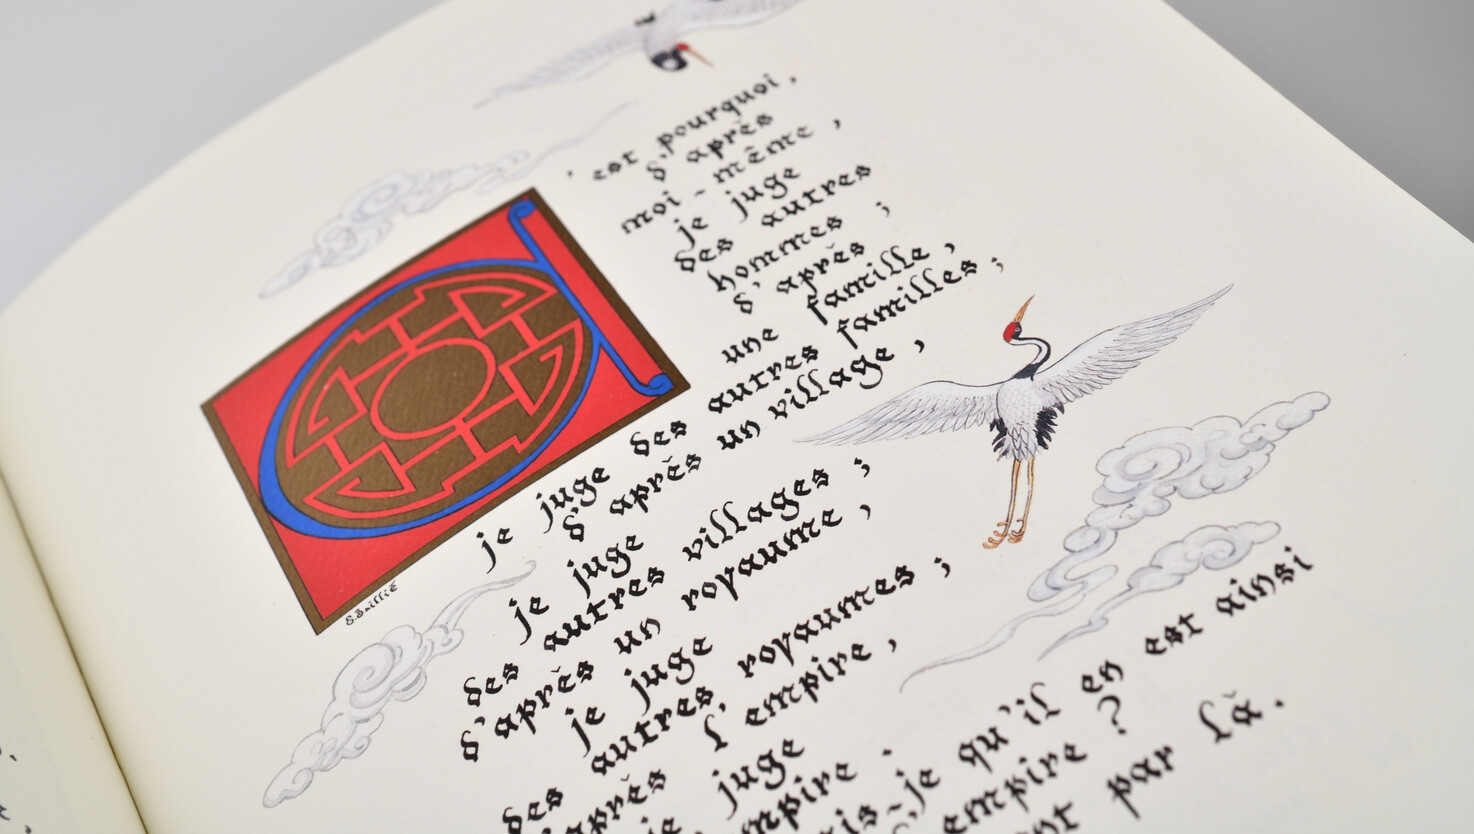 C'est pourquoi,
d'après
moi-même,
je juge
des autres
hommes ;
d'après
une famille,
je juge des autres familles ;
d'après un village,
je juge
des autres villages ;
d'après un royaume,
je juge
des autres royaumes ;
après l'empire,
juge
empire .
sais-je qu'il en est ainsi
empire ?
par là.
S. Baillié